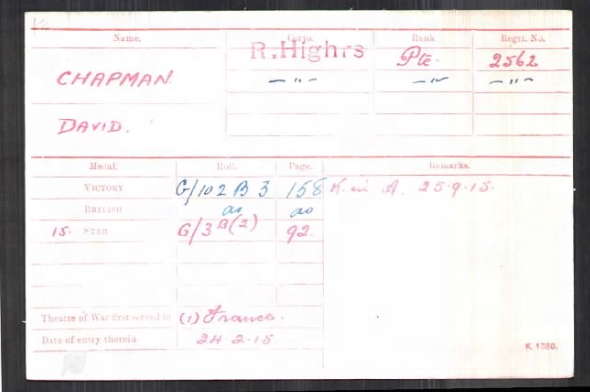 Name. Corps. Rank Regtl. No.
CHAPMAN R.Highrs Pte. 2562
— " — — " — — " —
DAVID.
Medal. Roll. Page. Remarks.
VICTORY G/102 B 3 158 K. in A. 25.9.15.
BRITISH do do
15. STAR G/3 B(2) 92.
Theatre of War first served in (1) France.
Date of entry therein 24.2.15
K. 1380.